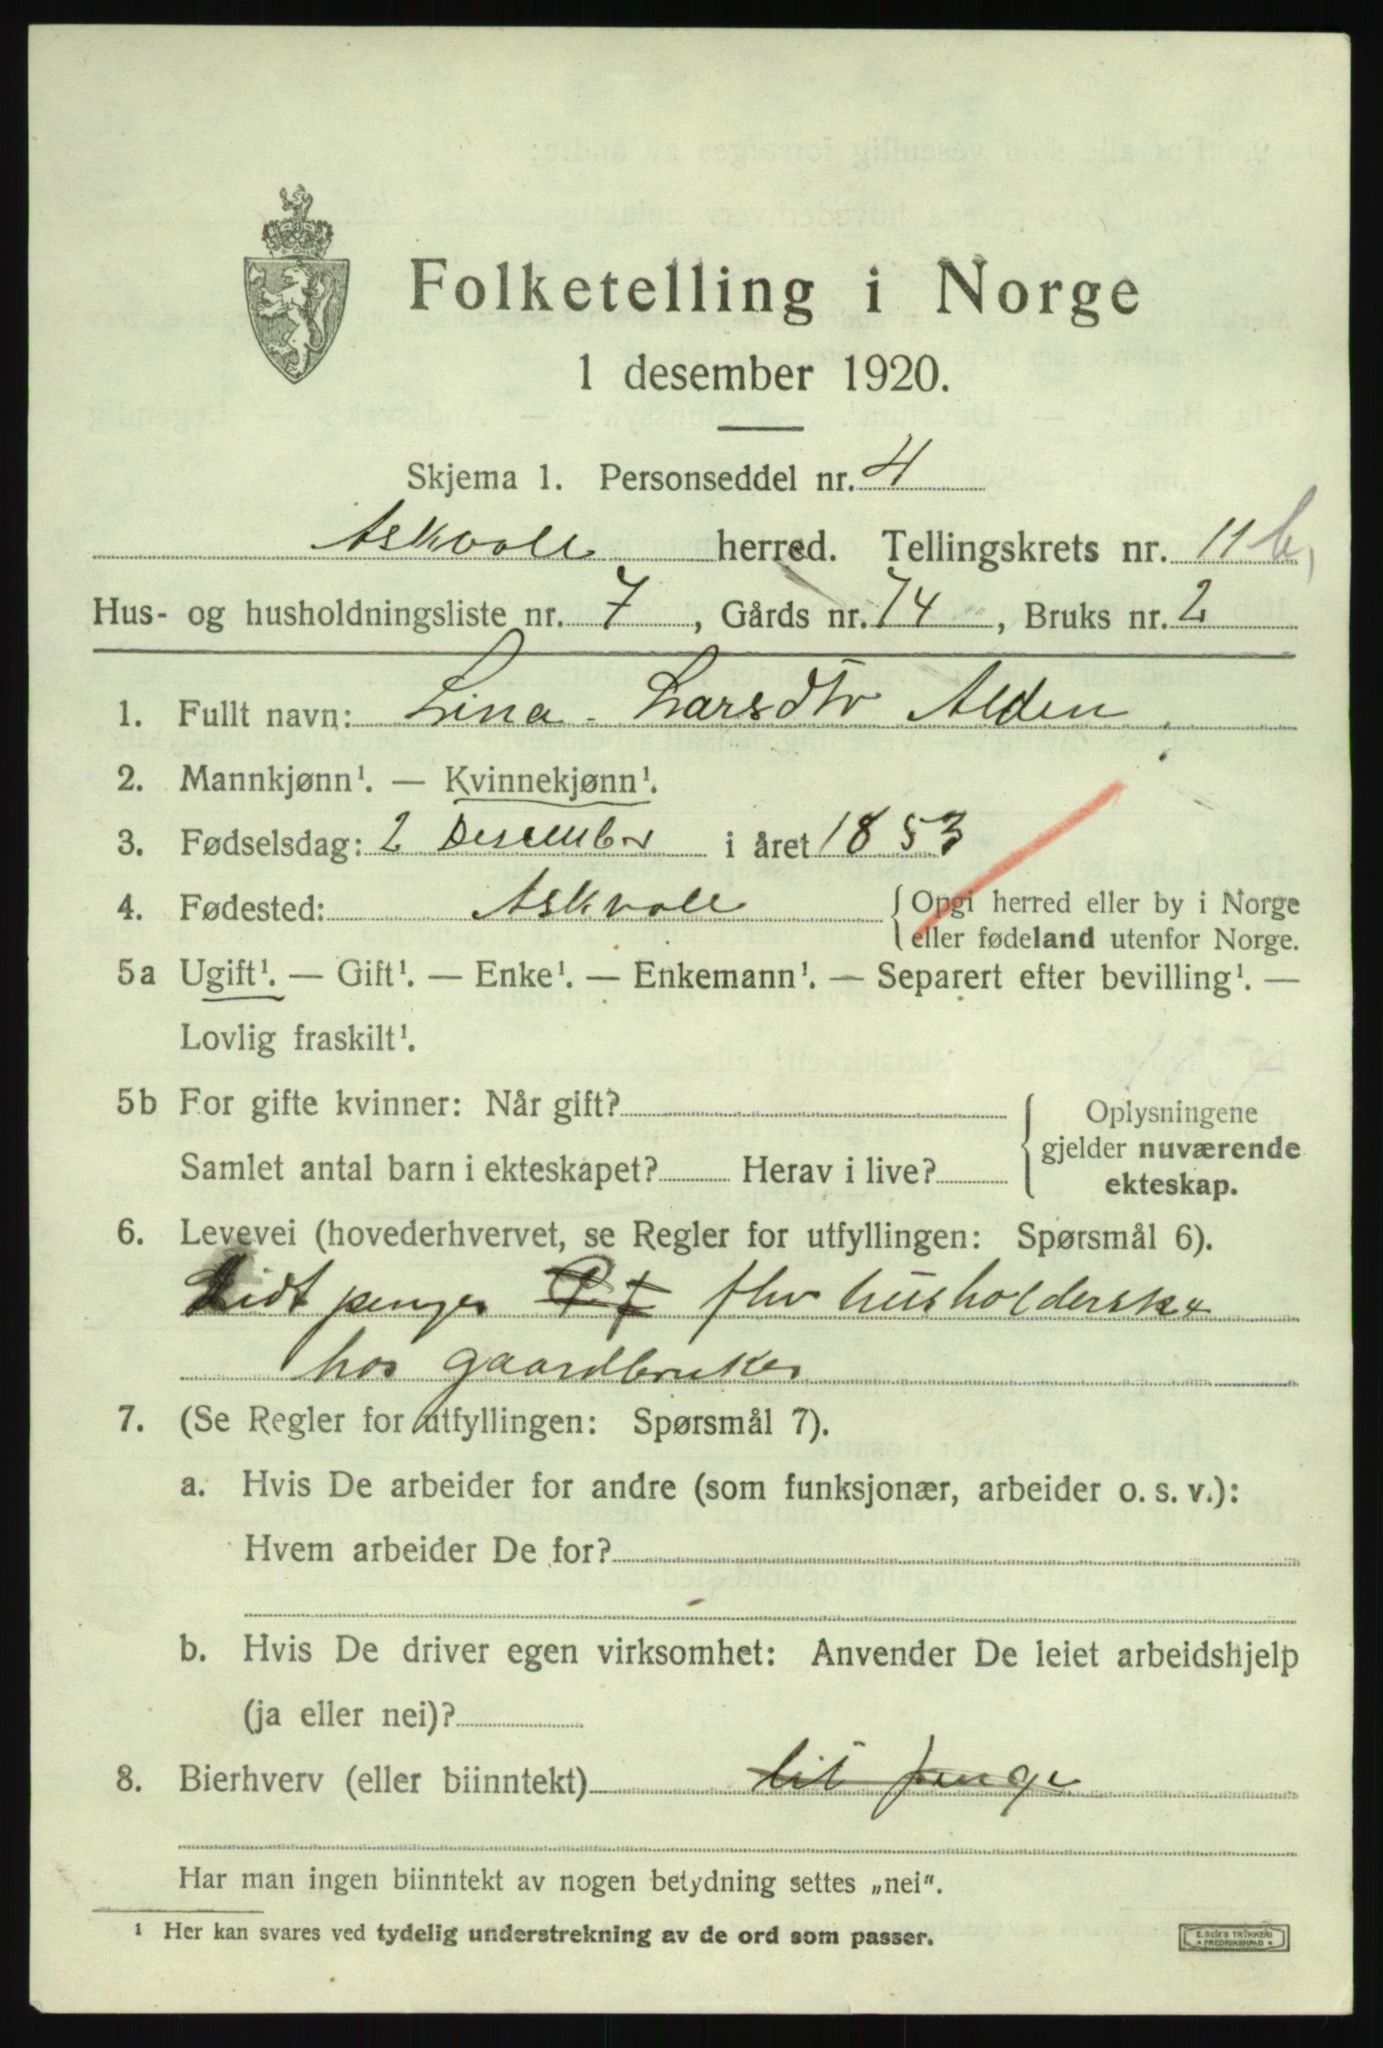 Folketelling i Norge
1 desember 1920.
Skjema 1. Personseddel nr. 4
Askvoll herred. Tellingskrets nr. 11 b,
Hus- og husholdningsliste nr. 7, Gårds nr. 74, Bruks nr. 2
1. Fullt navn: Lina Larsdtr Alden
2. Mannkjønn¹. — Kvinnekjønn¹.
3. Fødselsdag: 2 Desember i året 1853
4. Fødested: Askvoll {Opgi herred eller by i Norge
eller fødeland utenfor Norge.
5a Ugift¹. — Gift¹. — Enke¹. — Enkemann¹. — Separert efter bevilling¹. —
Lovlig fraskilt¹.
5b For gifte kvinner: Når gift? { Oplysningene
gjelder nuværende
Samlet antal barn i ekteskapet? Herav i live? ekteskap.
6. Levevei (hovederhvervet, se Regler for utfyllingen: Spørsmål 6).
Lidt penger fhv husholderske
hos gaardbruker
7. (Se Regler for utfyllingen: Spørsmål 7).
a. Hvis De arbeider for andre (som funksjonær, arbeider o. s. v.):
Hvem arbeider De for?
b. Hvis De driver egen virksomhet: Anvender De leiet arbeidshjelp
(ja eller nei)?
8. Bierhverv (eller biinntekt) lit penge
Har man ingen biinntekt av nogen betydning settes „nei".
¹ Her kan svares ved tydelig understrekning av de ord som passer.
E. SEM'S TRYKKERI
FREDRIKSHALD